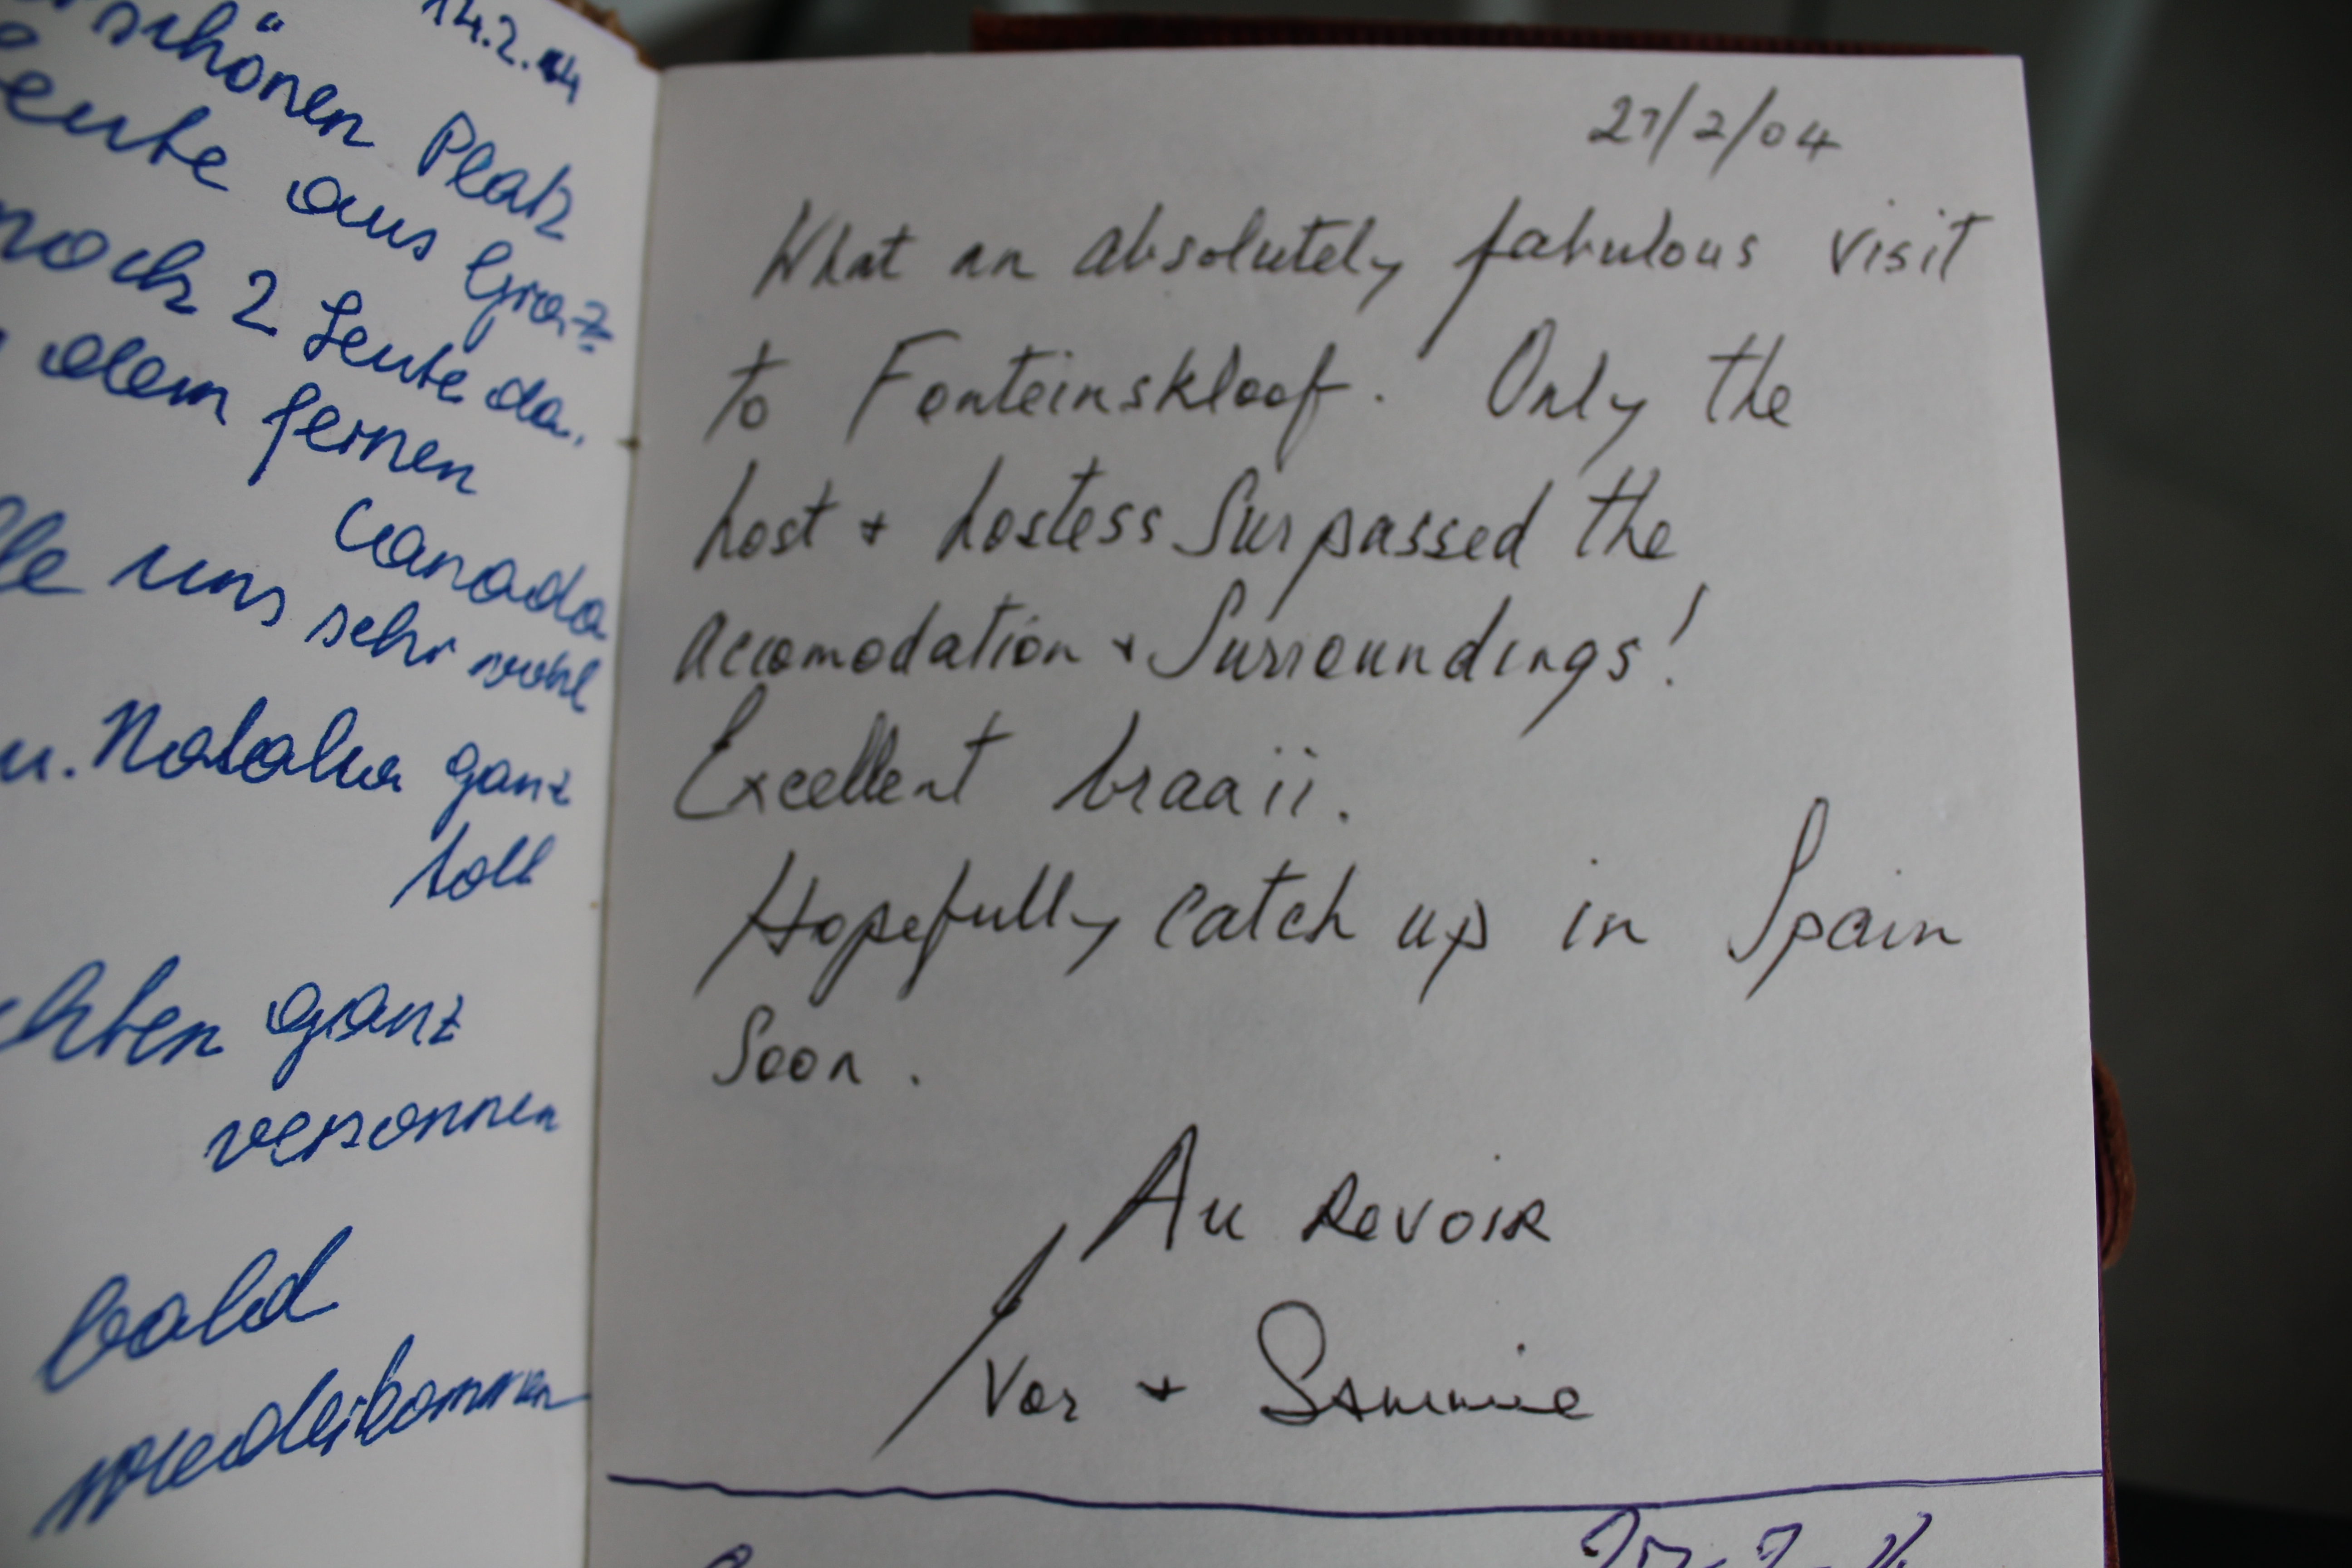 14.2.04
schönen Platz
Leute aus Graz
noch 2 Leute da,
dem fernen
Canada
uns sehr wohl
u. Natalia ganz
toll
ganz
versonnen
bald
wiederkommen
27/2/04
What an absolutely fabulous visit
to Fonteinskloof. Only the
host + hostess Surpassed the
accomodation + Surroundings!
Excellent braaii.
Hopefully catch up in Spain
Soon.
Au Revoir
Ivor + Sammie